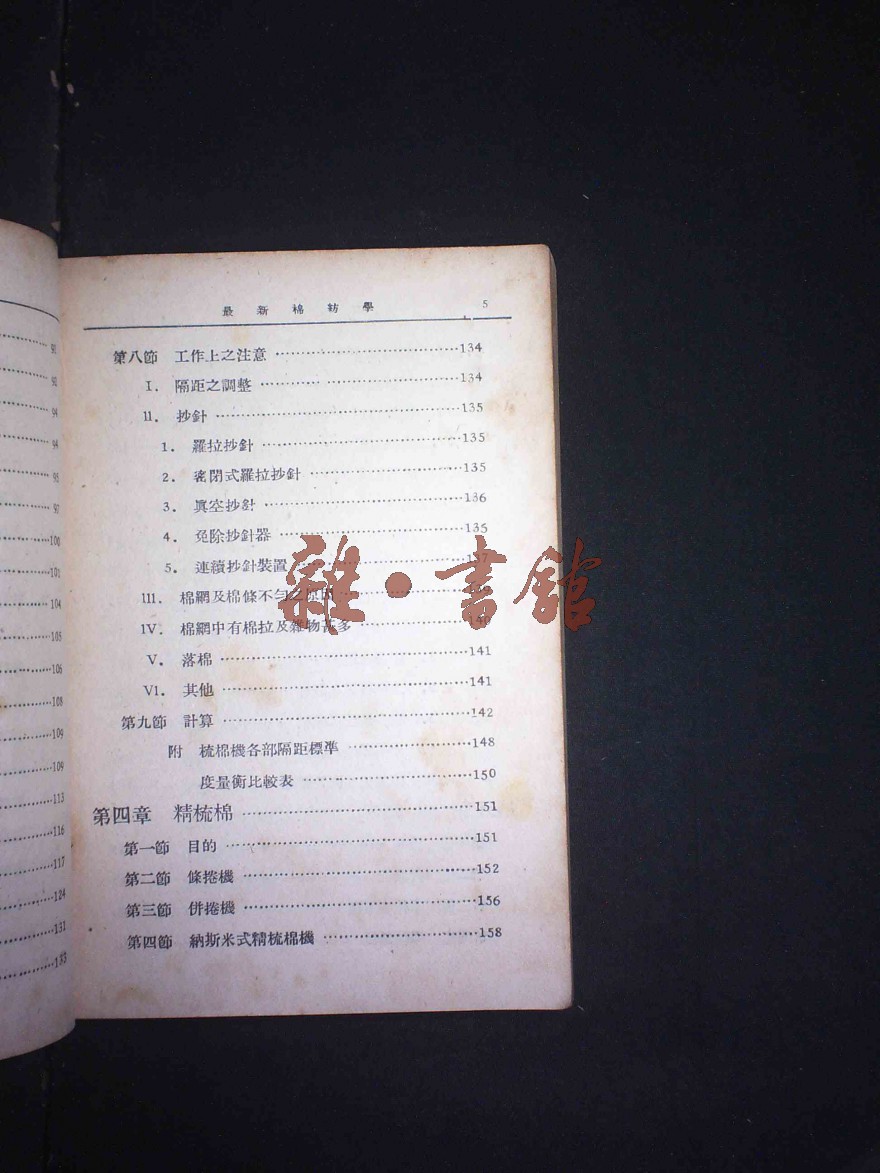 91
92
94
94
95
97
100
101
104
105
106
108
109
109
113
116
117
124
131
133
最新棉紡學 5
第八節 工作上之注意 134
I. 隔距之調整 134
II. 抄針 135
1. 羅拉抄針 135
2. 密閉式羅拉抄針 135
3. 眞空抄針 136
4. 免除抄針器 135
5. 連續抄針裝置 137
III. 棉網及棉條不勻之原因
IV. 棉網中有棉拉及雜物甚多 140
V. 落棉 141
VI. 其他 141
第九節 計算 142
附 梳棉機各部隔距標準 148
度量衡比較表 150
第四章 精梳棉 151
第一節 目的 151
第二節 條捲機 152
第三節 併捲機 156
第四節 納斯米式精梳棉機 158
雜·書館